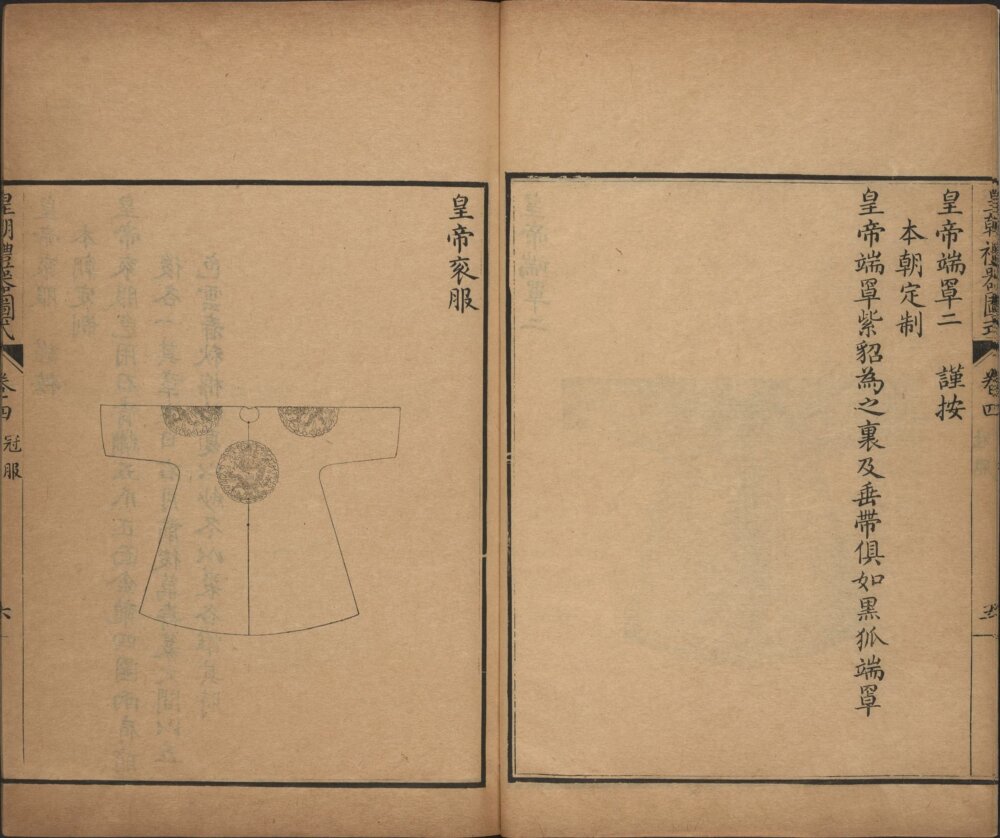 皇朝禮器圖式 卷四
皇帝端罩二 謹按
本朝定制
皇帝端罩紫貂為之裏及垂帶俱如黑狐端罩
皇帝衮服
皇朝禮器圖式 卷四 冠服 六